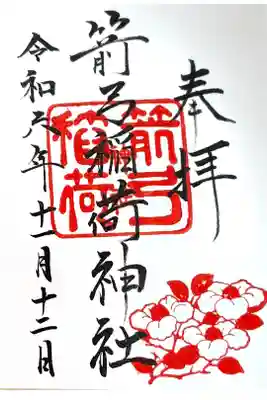 奉拝
箭弓稲荷
箭弓稲荷神社
令和六年十一月十二日